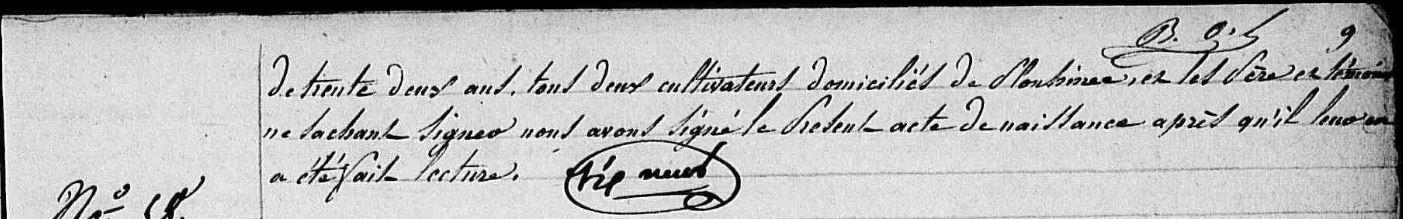 B. O. L 9
de trente deux ans, tous deux cultivateurs domiciliés de Plouhinec, et les Père et témoins
ne sachant signer nous avons signé le Présent acte de naissance après qu'il leur en
a été fait lecture.
N.o 18.